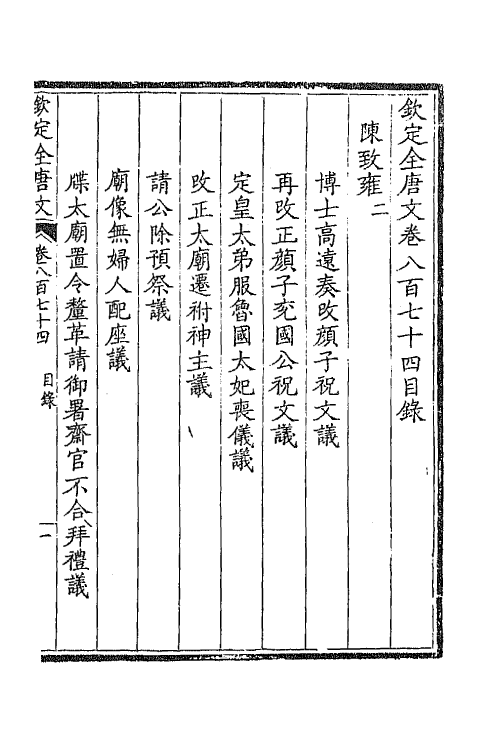 欽定全唐文卷八百七十四目錄
陳致雍二
博士高遠奏改顏子祝文議
再改正顏子兖國公祝文議
定皇太弟服魯國太妃喪儀議
改正太廟遷祔神主議
請公除預祭議
廟像無婦人配座議
牒太廟置令釐革請御署齋官不合拜禮議
欽定全唐文 卷八百七十四 目錄 一